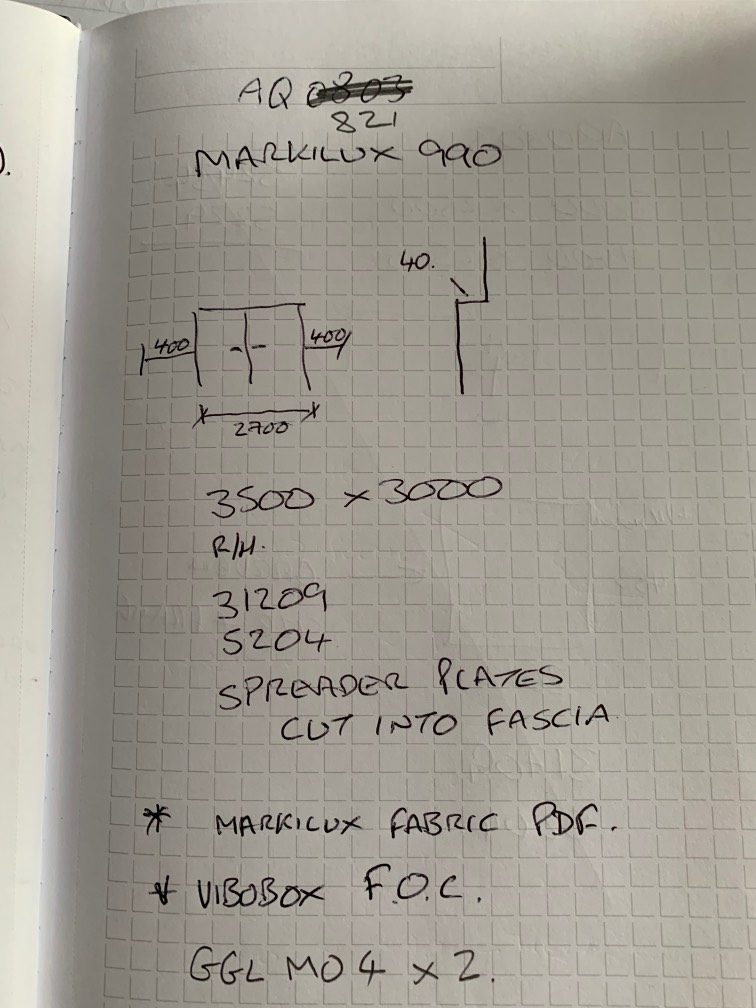 AQ 0803
821
MARKILUX 990
40.
400
400
2700
3500 x 3000
R/H.
31209
5204
SPREADER PLATES
CUT INTO FASCIA
* MARKILUX FABRIC PDF.
* VIBOBOX F.O.C.
GGL MO4 x 2.